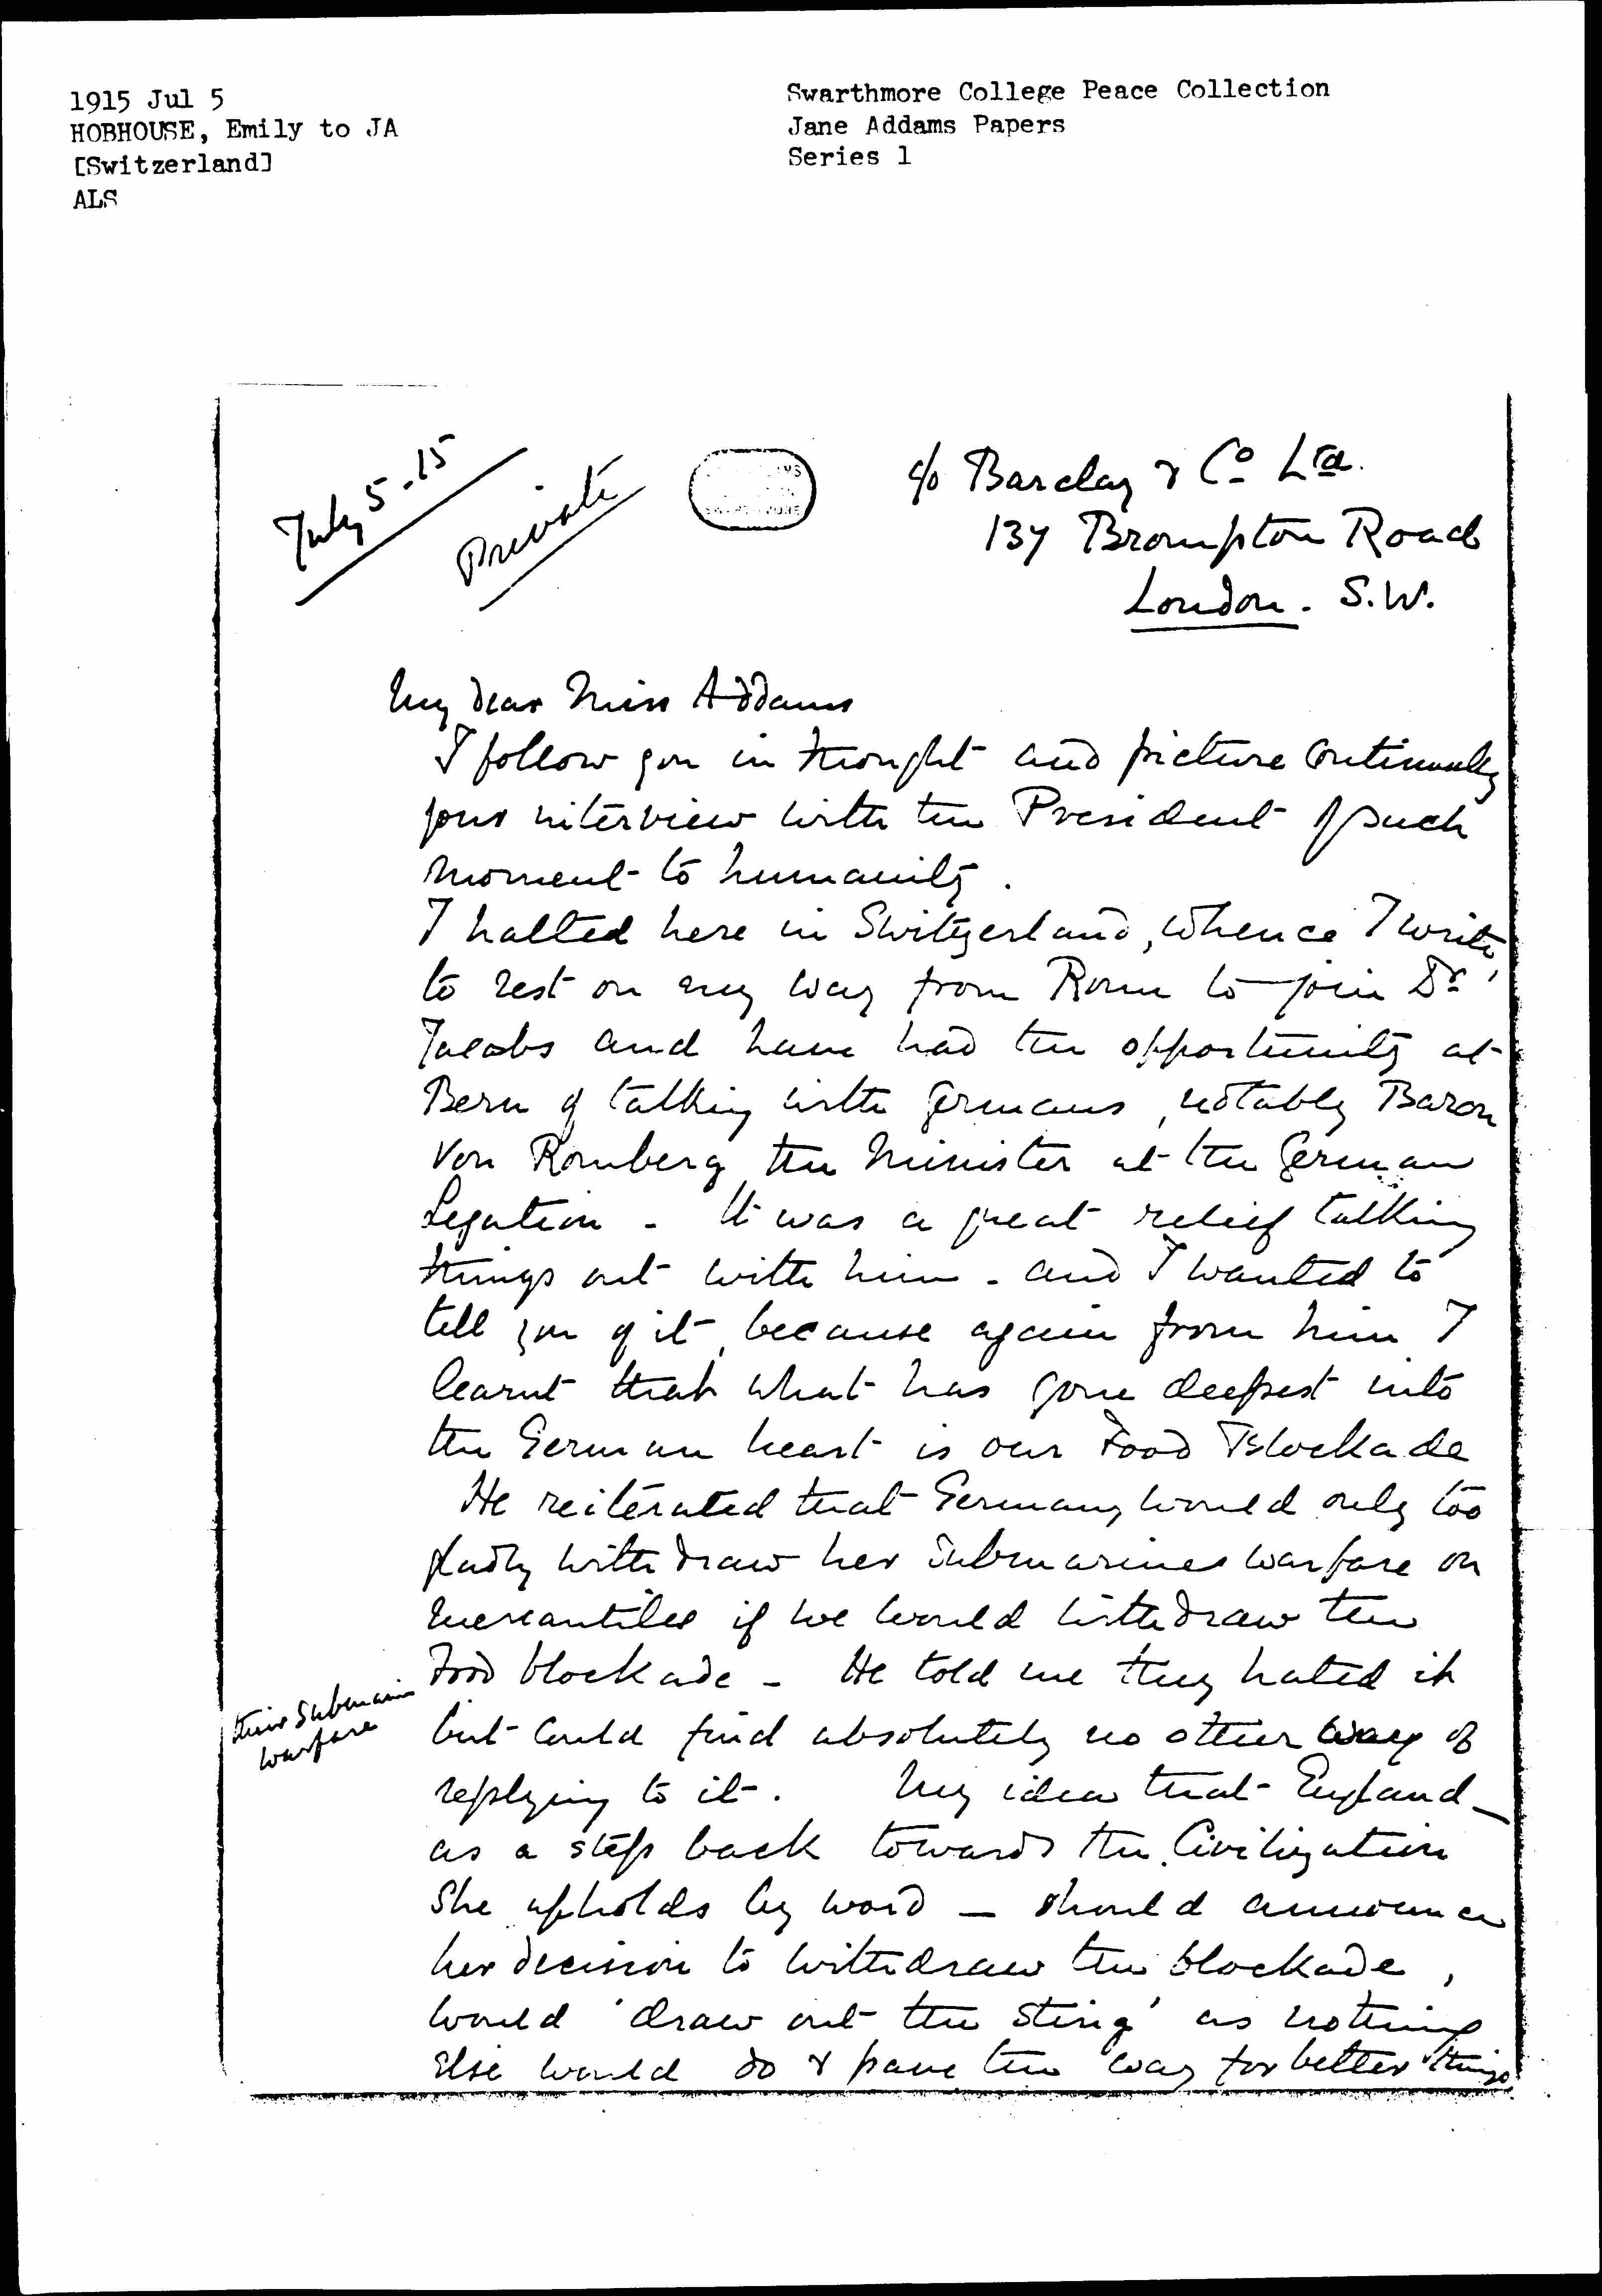 1915 Jul 5
HOBHOUSE, Emily to JA
[Switzerland]
ALS
Swarthmore College Peace Collection
Jane Addams Papers
Series 1
July 5-15
Private
c/o Barclay & Co Ltd.
137 Brompton Road
London. S.W.
My dear Miss Addams
I follow you in thought and picture continually
your interview with the President of such
moment to humanity.
I halted here in Switzerland, whence I write,
to rest on my way from Rome to join Dr
Jacobs and have had the opportunity at
Bern of talking with Germans, notably Baron
von Romberg the Minister at the German
Legation - It was a great relief talking
things out with him - and I wanted to
tell you of it, because again from him I
learnt that what has gone deepest into
the German heart is our Food Blockade
He reiterated that Germany would only too
gladly withdraw her submarines warfare on
mercantiles if we would withdraw the
Food blockade - He told me they hated it
their submarine
warfare
but could find absolutely no other way of
replying to it. My idea that England -
as a step back towards the Civilization
She upholds by word - should announce
her decision to withdraw the blockade,
would 'draw out the sting' as nothing
else would do & pave the way for better things.